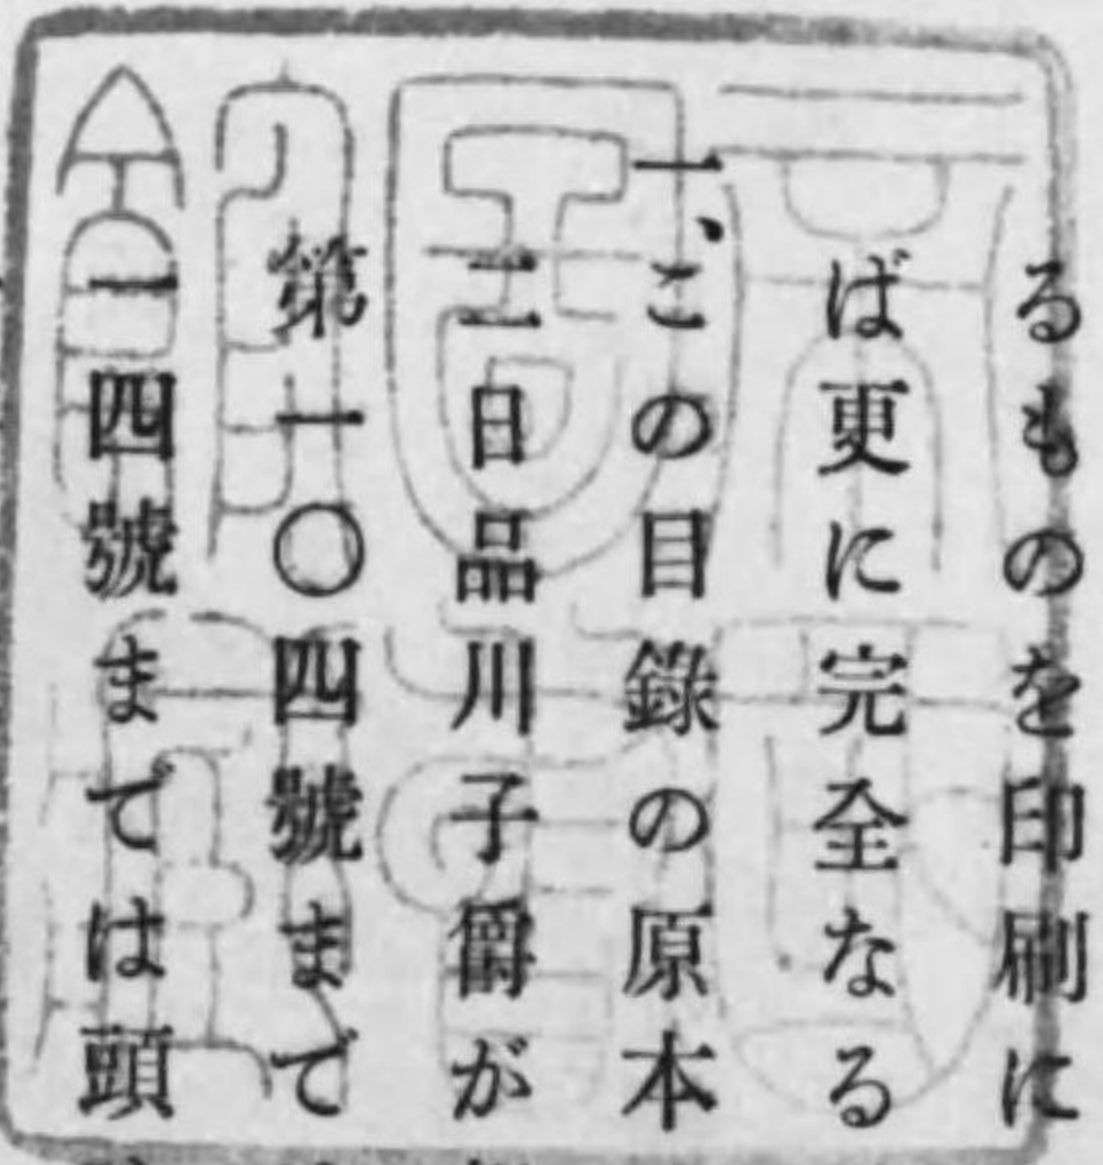 るものを印刷に
ば更に完全なる
一、この目錄の原本
二日品川子爵が
第一〇四號まで
一四號までは頭